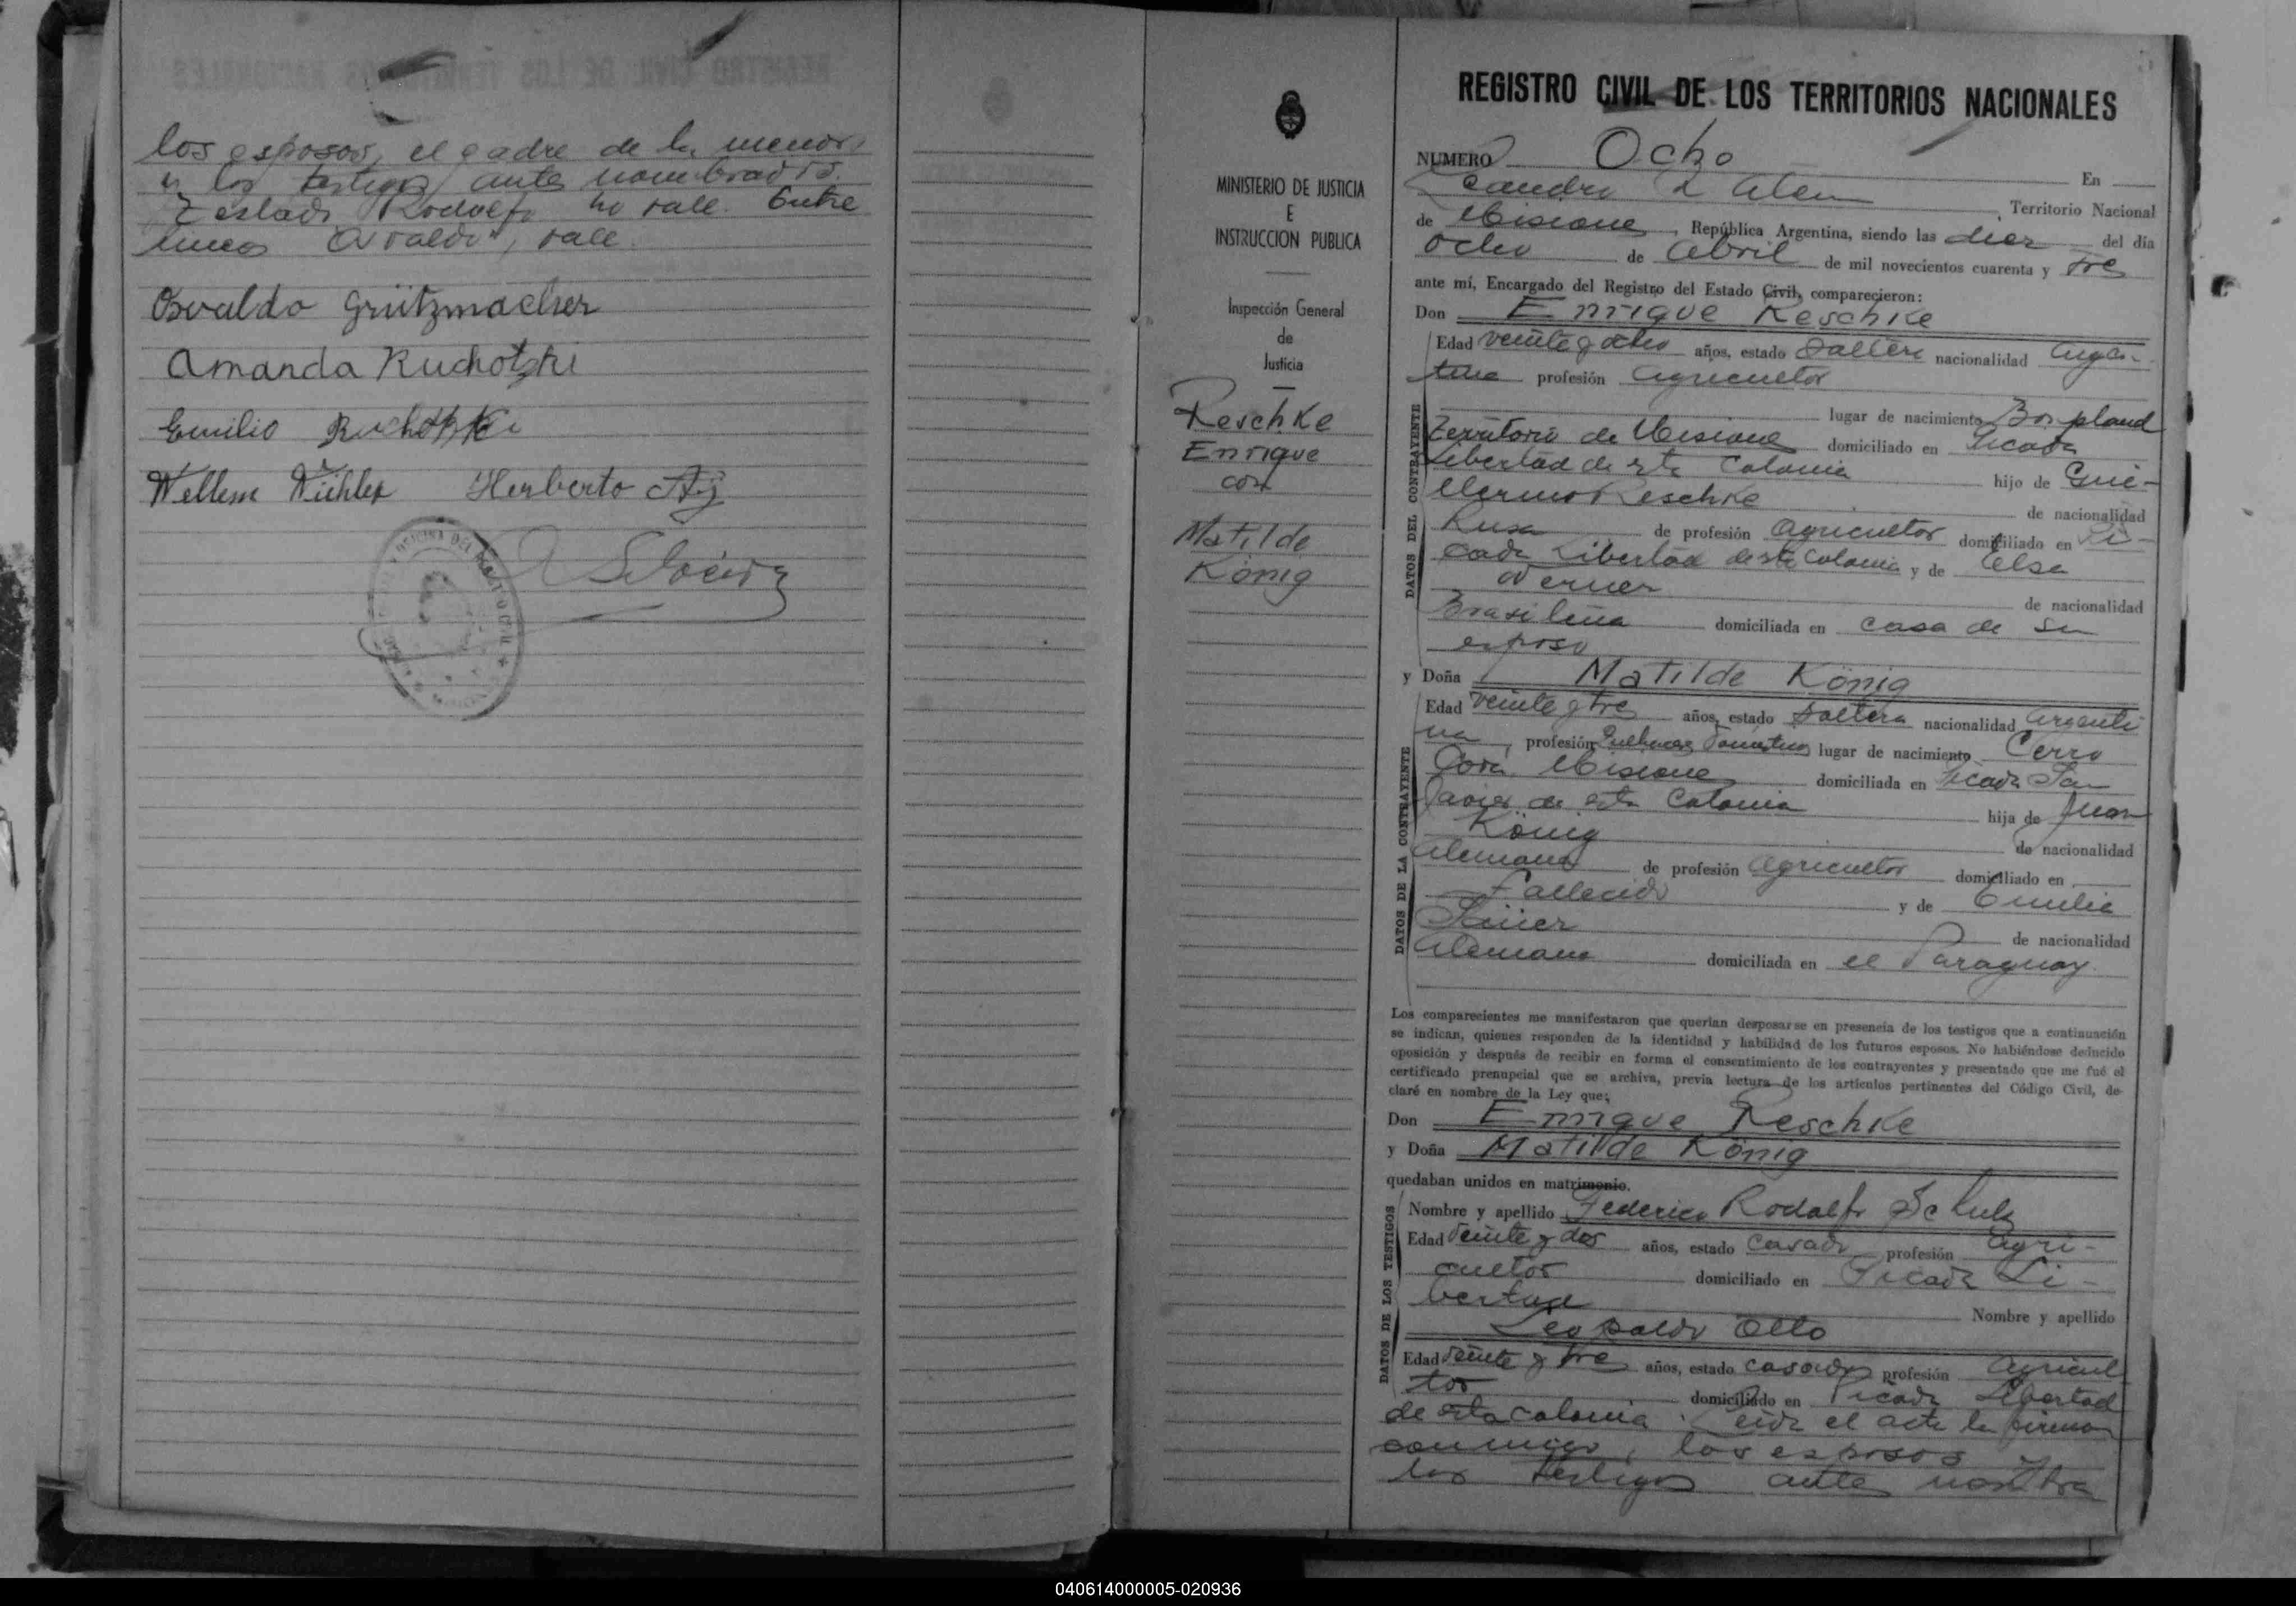 los esposos, el padre de la menor,
y los testigos antes nombrados.
Testado Rodolfo no vale. Entre
lineas Osvaldo, vale
Osvaldo Grützmacher
Amanda Ruchotzki
Emilio Ruchotzki
Willem Heriberto
OFICINA DEL
MINISTERIO DE JUSTICIA
E
INSTRUCCION PUBLICA
Inspección General
de
Justicia
Reschke
Enrique
con
Matilde
König
REGISTRO CIVIL DE LOS TERRITORIOS NACIONALES
NUMERO Ocho En
Leandro L Alem Territorio Nacional
de Misiones, República Argentina, siendo las diez del día
ocho de Abril de mil novecientos cuarenta y tres
ante mí, Encargado del Registro del Estado Civil, comparecieron:
Don Enrique Reschke
DATOS DEL CONTRAYENTE
Edad veinte y ocho años, estado Soltero nacionalidad Argen-
tina profesión Agricultor
lugar de nacimiento Bonpland
Territorio de Misiones domiciliado en Picada
Libertad de esta Colonia hijo de Gui-
llermo Reschke de nacionalidad
Rusa de profesión Agricultor domiciliado en Pi-
cada Libertad de esta Colonia y de Elsa
Werner de nacionalidad
Brasileña domiciliada en casa de su
esposo
y Doña Matilde König
DATOS DE LA CONTRAYENTE
Edad veinte y tres años, estado Soltera nacionalidad Argenti
na, profesión Quehaceres Domesticos lugar de nacimiento Cerro
Corá Misiones domiciliada en Picada San
Javier de esta Colonia hija de Juan
König de nacionalidad
Alemana de profesión Agricultor domiciliado en
Fallecido y de Emilia
de nacionalidad
Alemana domiciliada en el Paraguay.
Los comparecientes me manifestaron que querían desposarse en presencia de los testigos que a continuación
se indican, quienes responden de la identidad y habilidad de los futuros esposos. No habiéndose deducido
oposición y después de recibir en forma el consentimiento de los contrayentes y presentado que me fué el
certificado prenupcial que se archiva, previa lectura de los artículos pertinentes del Código Civil, de-
claré en nombre de la Ley que:
Don Enrique Reschke
y Doña Matilde König
quedaban unidos en matrimonio.
DATOS DE LOS TESTIGOS
Nombre y apellido Federico Rodolfo Schulz
Edad veinte y dos años, estado casado profesión Agri-
cultor domiciliado en Picada Li-
bertad Nombre y apellido
Leopoldo Otto
Edad veinte y tres años, estado casado profesión Agricul
tor domiciliado en Picada Libertad
de esta colonia. Leida el acta la firman
conmigo, los esposos y
los testigos antes nombra
040614000005-020936